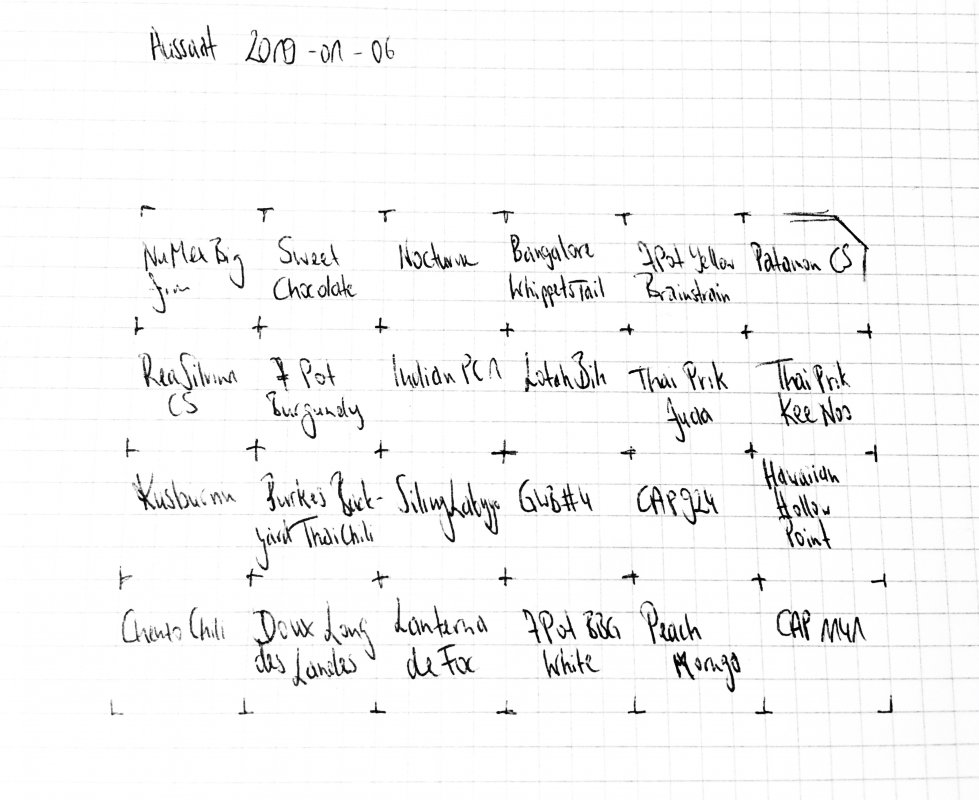 Aussaat 2019-01-06
NuMex Big Jim
Sweet Chocolate
Nocturne
Bangalore Whippets Tail
7Pot Yellow Brainstrain
CS
CS
7 Pot Burgundy
Indian PC1
Lotah Bih
Thai Prik Jucia
Thai Prik Kee Noo
Kusburnu
Burkes Backyard Thai Chili
Siling Labuyo
GWB#4
CAP 924
Hawaiian Hollow Point
Chento Chili
Doux Long des Landes
Lanterna de Foc
7Pot BBG White
Peach Morugo
CAP 1141